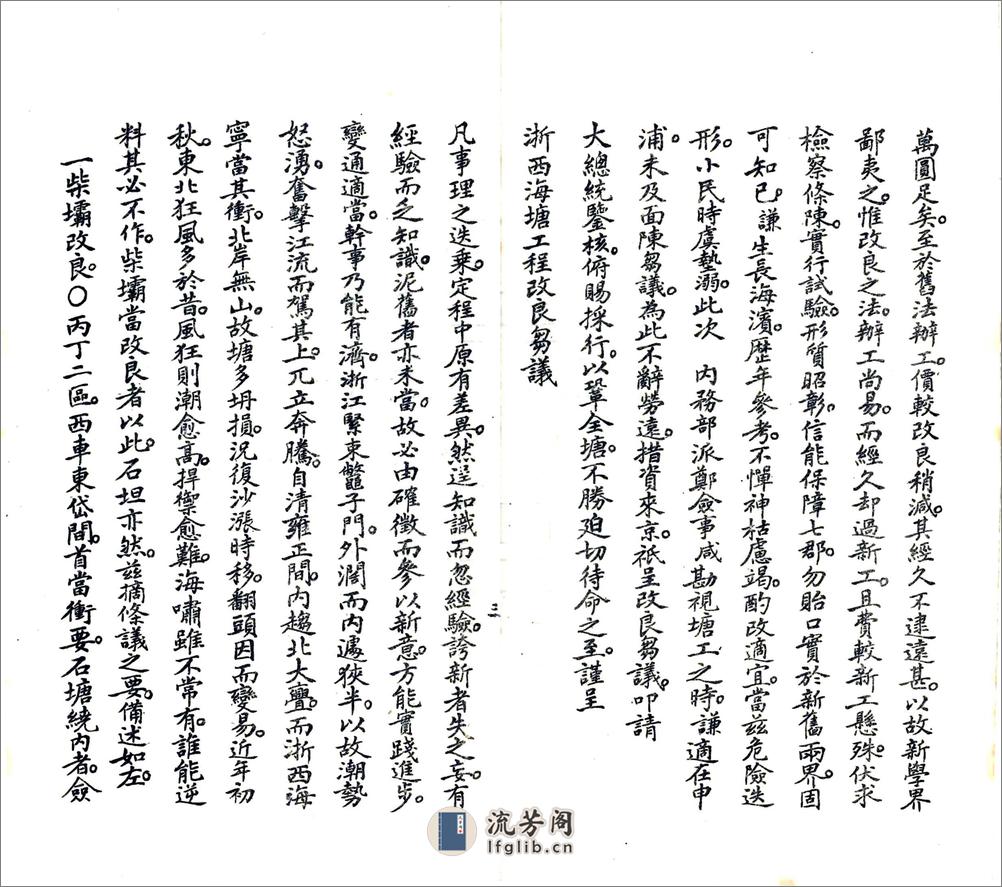 萬圓足矣。至於舊法辦工。價較改良稍減。其經久不逮遠甚。以故新學界
鄙夷之。惟改良之法。辦工尚易。而經久却過新工。且費較新工懸殊。伏求
檢察條陳。實行試驗。形質昭彰。信能保障七郡。勿貽口實於新舊兩界。固
可知已。謙生長海濱。歷年參考。不憚神枯慮竭。酌改適宜。當茲危險迭
形。小民時虞墊溺。此次 內務部派鄭僉事咸勘視塘工之時。謙適在申
浦。未及面陳芻議。為此不辭勞遠。措資來京。祇呈改良芻議。叩請
大總統鑒核。俯賜採行。以鞏全塘。不勝廹切待命之至。謹呈
浙西海塘工程改良芻議
三
凡事理之迭乗。定程中原有差異。然逞知識而忽經驗。誇新者失之妄。有
經驗而乏知識。泥舊者亦未當。故必由確徵而參以新意。方能實踐進步。
變通適當。幹事乃能有濟。浙江緊束鼈子門。外濶而內遽狹半。以故潮勢
怒湧。奮擊江流而駕其上。兀立奔騰。自清雍正間。內趨北大亹。而浙西海
寧當其衝。北岸無山。故塘多坍損。況復沙漲時移。翻頭因而變易。近年初
秋。東北狂風多於昔。風狂則潮愈高。捍禦愈難。海嘯雖不常有。誰能逆
料其必不作。柴壩當改良者以此。石坦亦然。茲摘條議之要。備述如左。
一柴壩改良。〇丙丁二區。西車東岱間。首當衝要。石塘繞內者。僉
流芳阁
lfglib.cn